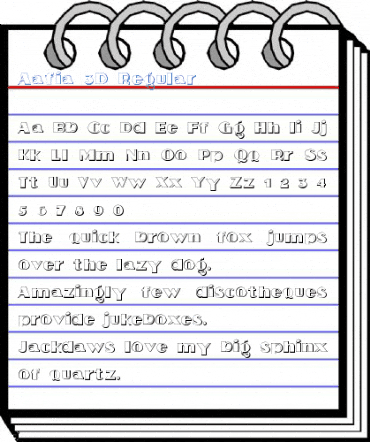 Aafia 3D Regular
Aa Bb Cc Dd Ee Ff Gg Hh Ii Jj
Kk Ll Mm Nn Oo Pp Qq Rr Ss
Tt Uu Vv Ww Xx Yy Zz 1 2 3 4
5 6 7 8 9 0
The quick brown fox jumps
over the lazy dog.
Amazingly few discotheques
provide jukeboxes.
Jackdaws love my big sphinx
of quartz.